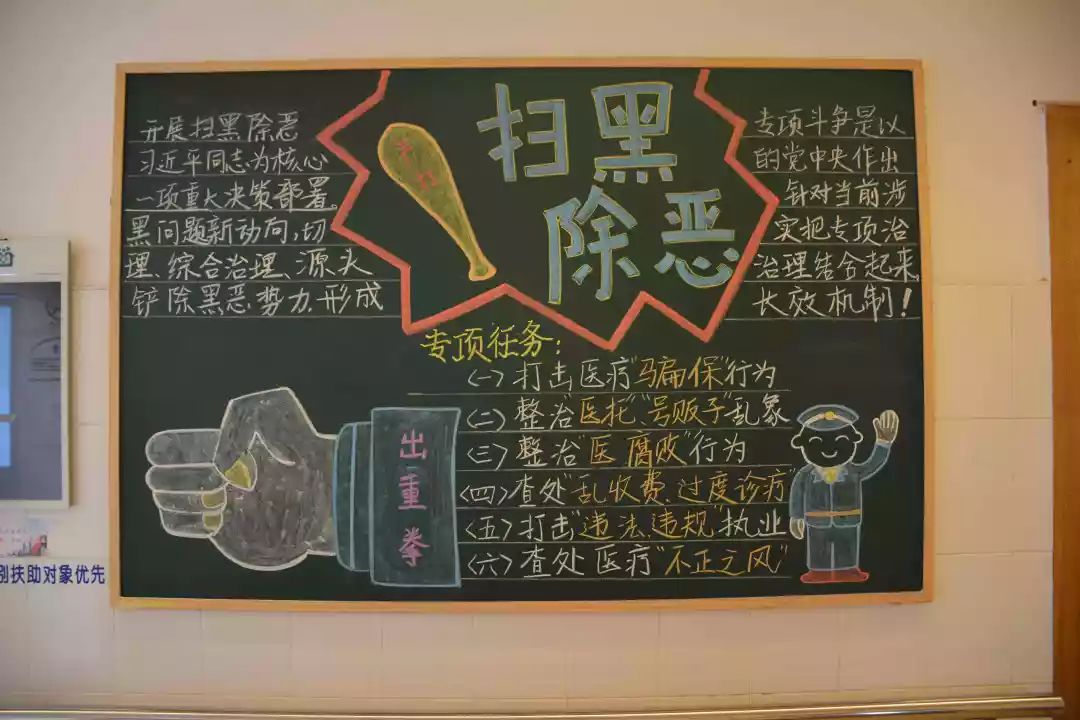 扫黑
除恶
开展扫黑除恶
专项斗争是以
习近平同志为核心
的党中央作出
一项重大决策部署。
针对当前涉
黑问题新动向,切
实把专项治
理、综合治理、源头
治理结合起来,
铲除黑恶势力,形成
长效机制!
专项任务:
(一)打击医疗"骗保"行为
(二)整治"医托""号贩子"乱象
(三)整治"医 腐败"行为
(四)查处"乱收费、过度诊疗"
(五)打击"违法、违规"执业
(六)查处医疗"不正之风"
出重拳
别扶助对象优先